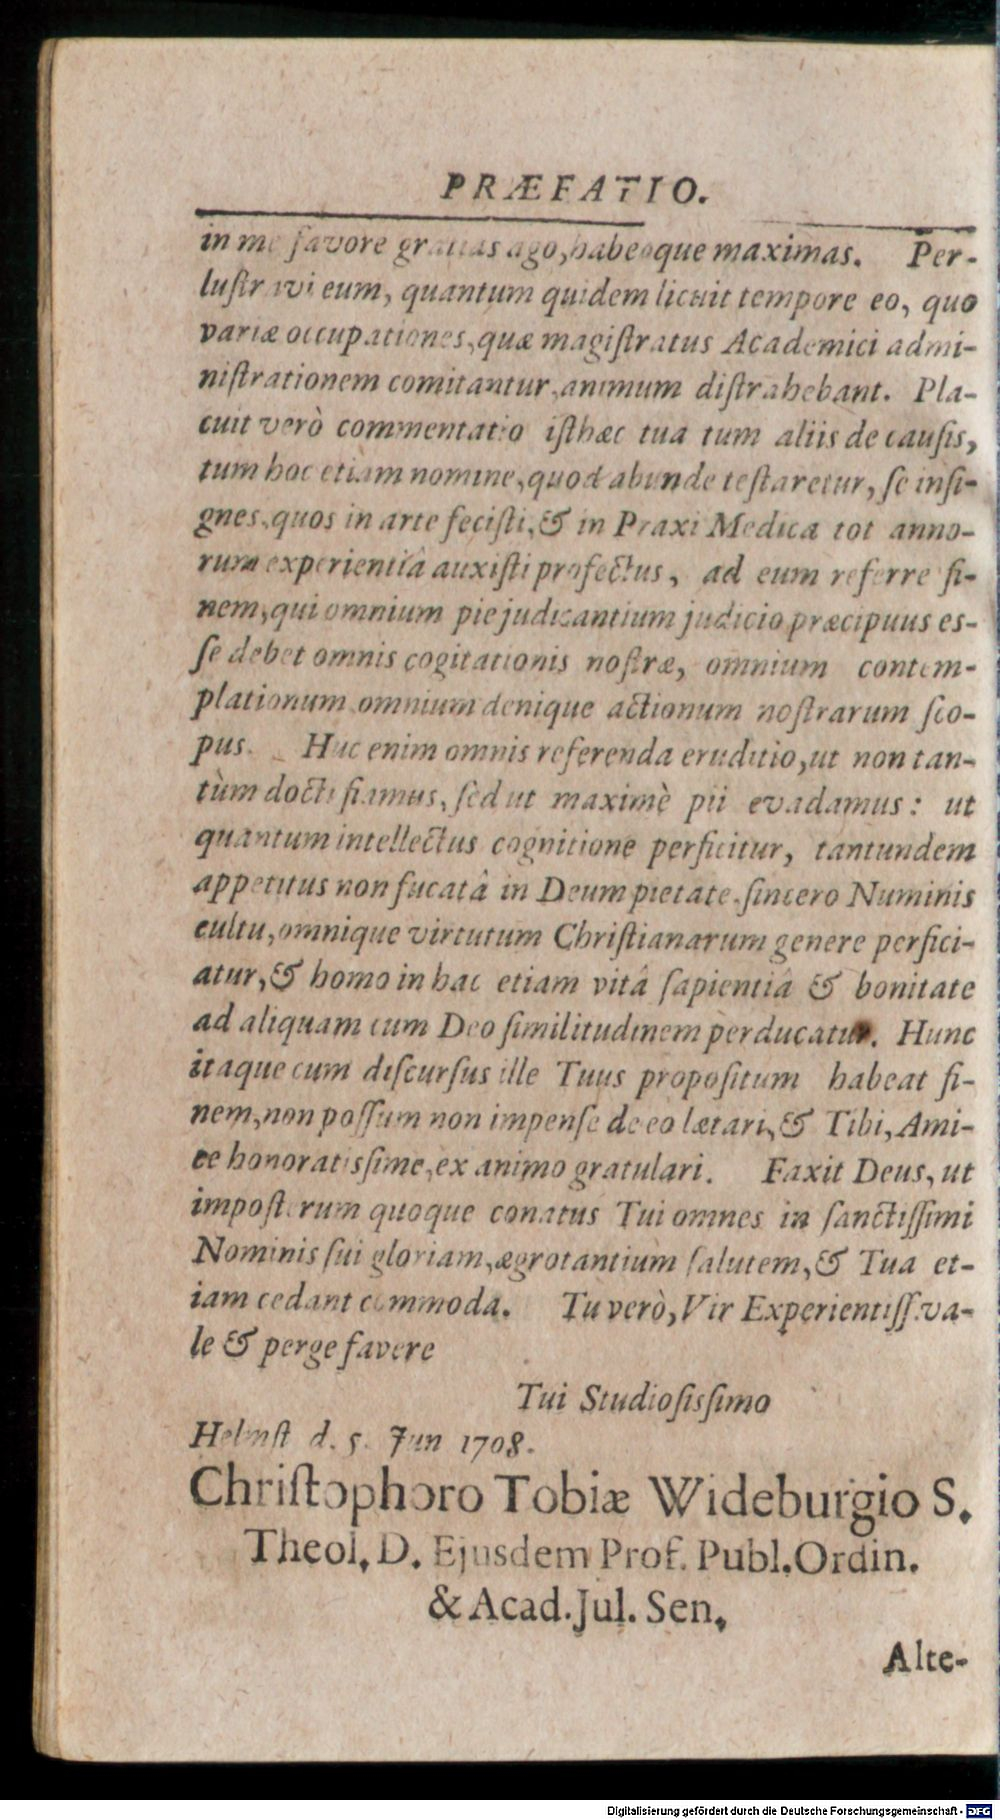 PRÆFATIO.
in me favore gratias ago, habeoque maximas. Per-
luſtravi eum, quantum quidem licuit tempore eo, quo
variæ occupationes, quæ magiſtratus Academici admi-
niſtrationem comitantur, animum diſtrahebant. Pla-
cuit verò commentatio iſthæc tua tum aliis de cauſis,
tum hoc etiam nomine, quod abunde teſtaretur, ſe inſi-
gnes, quos in arte feciſti, & in Praxi Medica tot anno-
rum experientiâ auxiſti profectus, ad eum referre fi-
nem, qui omnium pie judicantium judicio præcipuus es-
ſe debet omnis cogitationis noſtræ, omnium contem-
plationum omnium denique actionum noſtrarum ſco-
pus. Huc enim omnis referenda eruditio, ut non tan-
tùm docti fiamus, ſed ut maximè pii evadamus: ut
quantum intellectus cognitione perficitur, tantundem
appetitus non fucatâ in Deum pietate, ſincero Numinis
cultu, omnique virtutum Chriſtianarum genere perfici-
atur, & homo in hac etiam vitâ ſapientiâ & bonitate
ad aliquam cum Deo ſimilitudinem perducatur. Hunc
itaque cum diſcurſus ille Tuus propoſitum habeat fi-
nem, non poſſum non impenſe de eo lætari, & Tibi, Ami-
ce honoratisſime, ex animo gratulari. Faxit Deus, ut
impoſterum quoque conatus Tui omnes in ſanctiſſimi
Nominis ſui gloriam, ægrotantium ſalutem, & Tua et-
iam cedant commoda. Tu verò, Vir Experientiſſ. va-
le & perge favere
Tui Studioſisſimo
Helmſt d. 5. Jun 1708.
Chriſtophoro Tobiæ Wideburgio S.
Theol. D. Ejusdem Prof. Publ. Ordin.
& Acad. Jul. Sen.
Alte-
Digitalisierung gefördert durch die Deutsche Forschungsgemeinschaft - DFG